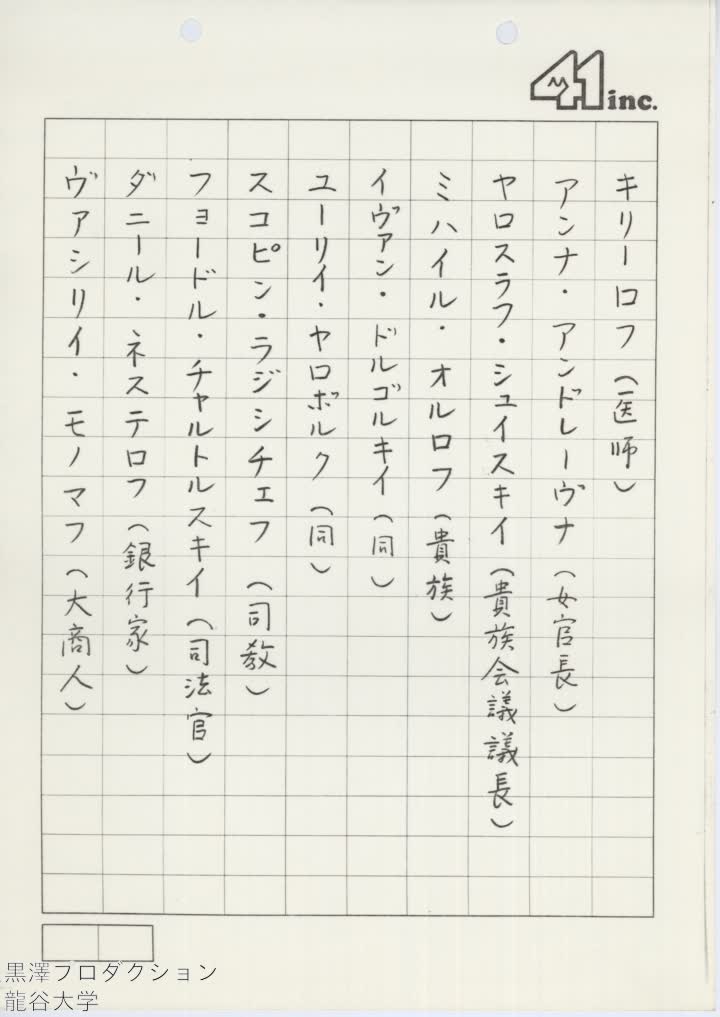 41 inc.
キリーロフ（医師）
アンナ・アンドレーヴナ（女官長）
ヤロスラフ・シュイスキイ（貴族会議議長）
ミハイル・オルロフ（貴族）
イヴァン・ドルゴルキイ（同）
ユーリイ・ヤロボルク（同）
スコピン・ラジシチェフ（司教）
フョードル・チャルトルスキイ（司法官）
ダニール・ネステロフ（銀行家）
ヴァシリイ・モノマフ（大商人）
黒澤プロダクション
龍谷大学